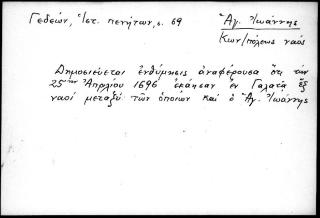 Γεδεών, Ἱστ. πενήτων, σ. 69
Ἁγ. Ἰωάννης
Κων/πόλεως ναός
Δημοσιεύεται ἐνθύμησις ἀναφέρουσα ὅτι τὴν
25ην Ἀπριλίου 1696 ἐκάησαν ἐν Γαλατᾷ ἓξ
ναοὶ μεταξὺ τῶν ὁποίων καὶ ὁ Ἁγ. Ἰωάννης